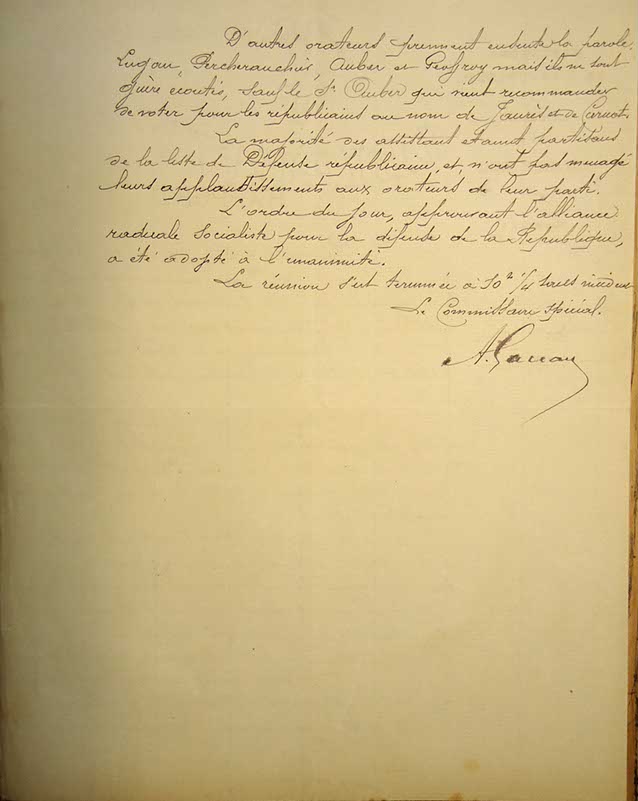 D'autres orateurs prennent ensuite la parole.
Lugan, Auber et Geoffroy mais ils ne sont
guère écoutés, sauf le Sr Auber qui vient recommander
de voter pour les républicains au nom de Jaurès et de
La majorité des assistant étant partisans
de la liste de Défense républicaine, et, n'ont pas menagé
leurs applaudissements aux orateurs de leur parti.
L'ordre du jour, approuvant l'alliance
radicale socialiste pour la défense de la République,
a été adopté à l'unanimité.
La réunion s'est terminée à 10h 1/4 sans incident
Le Commissaire spécial.